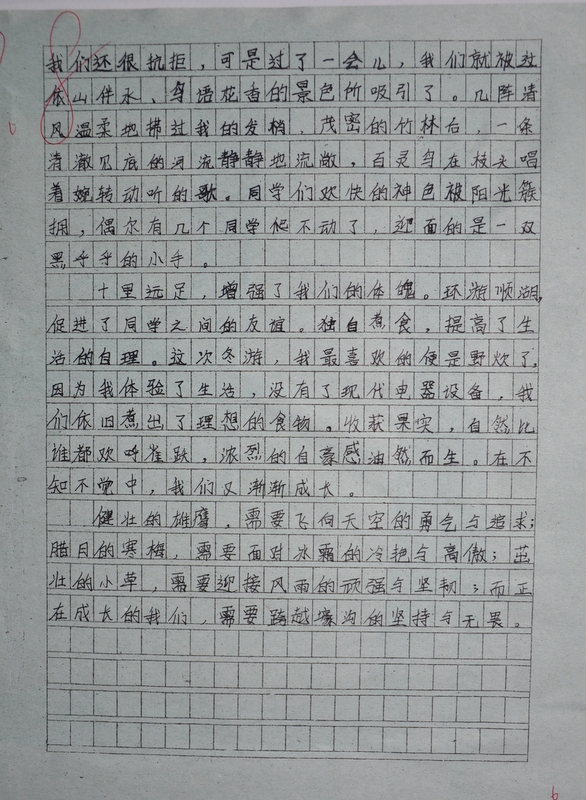 我们还很抗拒，可是过了一会儿，我们就被这
依山伴水、鸟语花香的景色所吸引了。几阵清
风温柔地拂过我的发梢，茂密的竹林后，一条
清澈见底的河流静静地流敞，百灵鸟在枝头唱
着婉转动听的歌。同学们欢快的神色被阳光簇
拥，偶尔有几个同学爬不动了，迎面的是一双
黑乎乎的小手。
十里远足，增强了我们的体魄。环游顺湖，
促进了同学之间的友谊。独自煮食，提高了生
活的自理。这次冬游，我最喜欢的便是野炊了，
因为我体验了生活，没有了现代电器设备，我
们依旧煮出了理想的食物。收获果实，自然比
谁都欢呼雀跃，浓烈的自豪感油然而生。在不
知不觉中，我们又渐渐成长。
健壮的雄鹰，需要飞向天空的勇气与追求；
腊日的寒梅，需要面对冰霜的冷艳与高傲；茁
壮的小草，需要迎接风雨的顽强与坚韧；而正
在成长的我们，需要跨越壕沟的坚持与无畏。